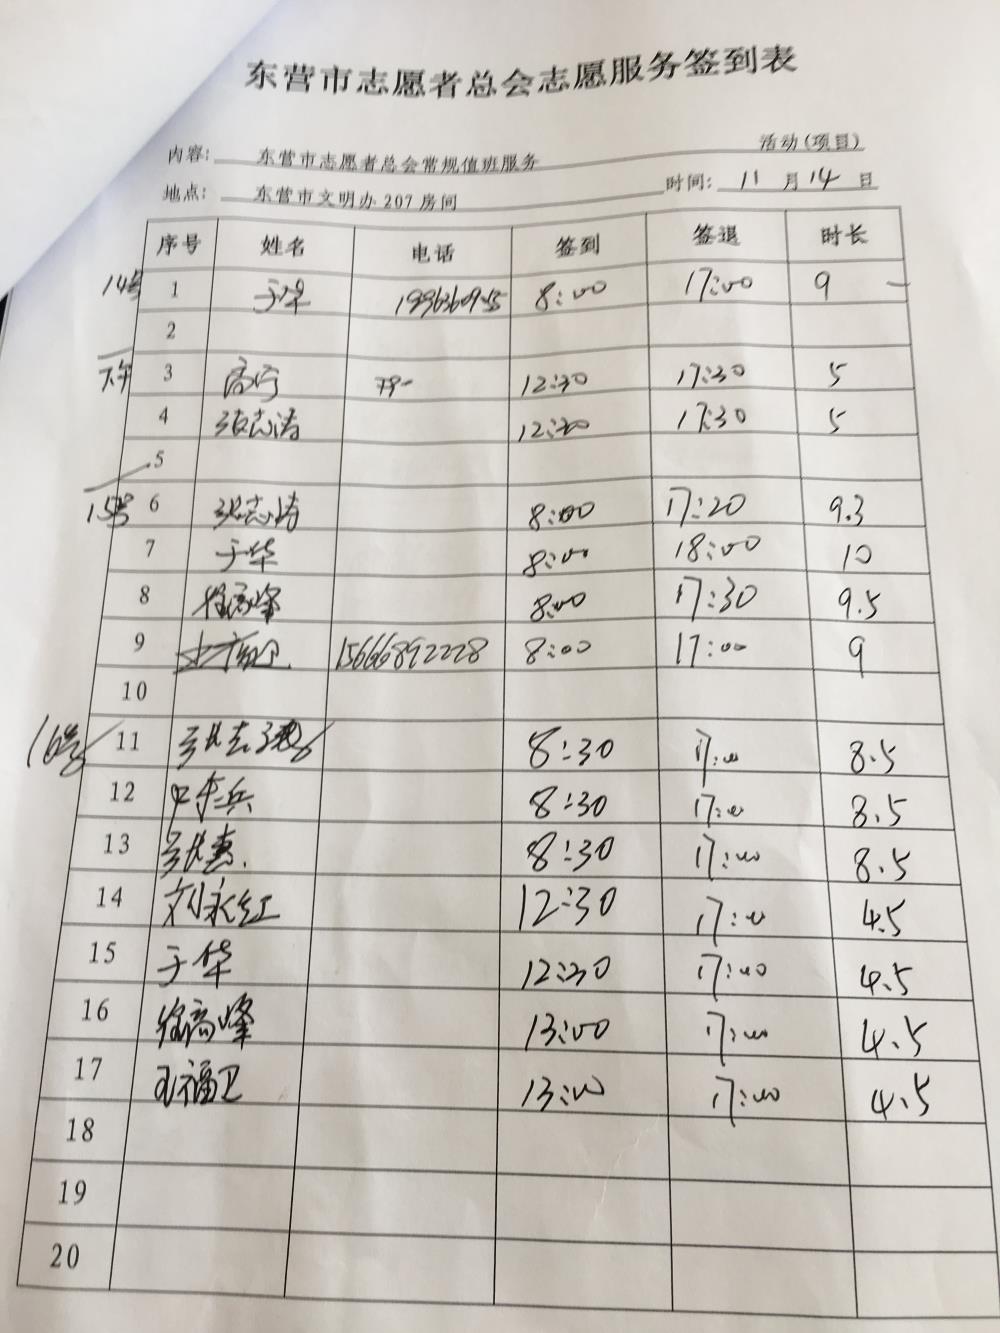 东营市志愿者总会志愿服务签到表
内容: 东营市志愿者总会常规值班服务 活动(项目)
地点: 东营市文明办207房间 时间: 11 月 14 日
序号 姓名 电话 签到 签退 时长
14号 1 于华 8:00 17:00 9
2
下午 3 12:30 17:30 5
4 张志涛 12:30 17:30 5
5
15号 6 张志涛 8:00 17:20 9.3
7 于华 8:00 18:00 10
8 徐高峰 8:00 17:30 9.5
9 15666892228 8:00 17:00 9
10
16号 11 8:30 17:00 8.5
12 8:30 17:00 8.5
13 8:30 17:00 8.5
14 刘永红 12:30 17:00 4.5
15 于华 12:30 17:00 4.5
16 徐高峰 13:00 17:00 4.5
17 王福卫 13:00 17:00 4.5
18
19
20